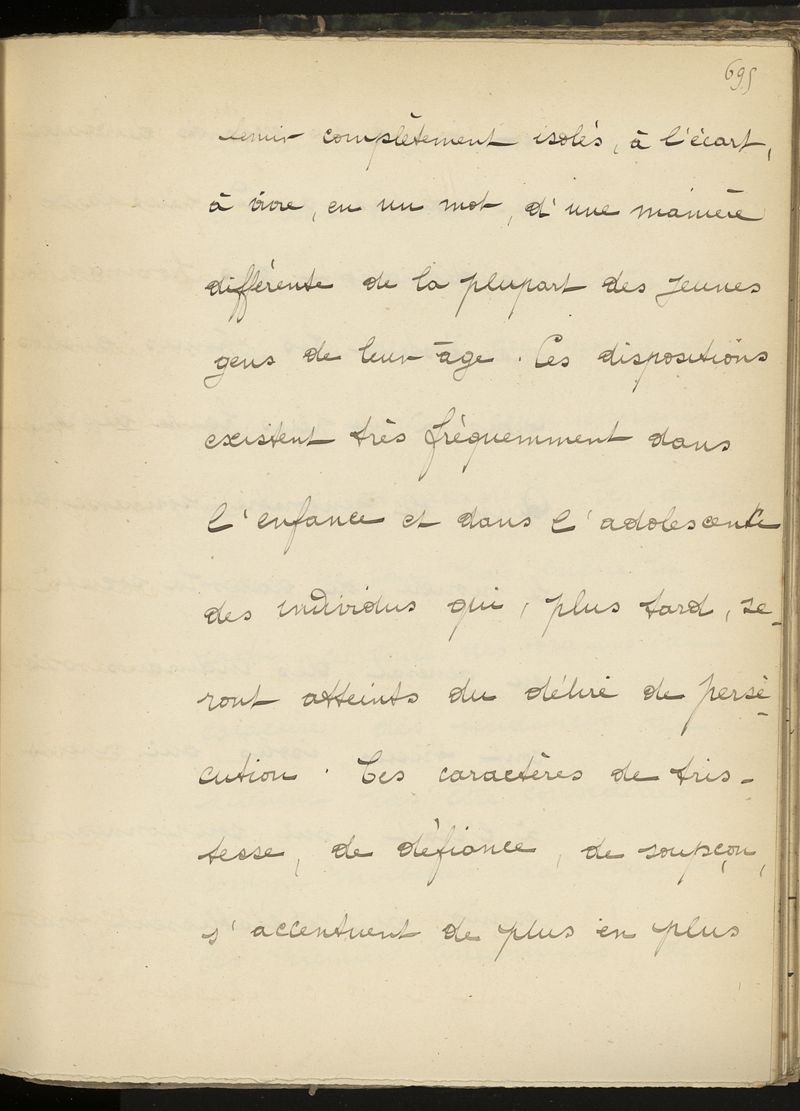 695
tenir complètement isolés, à l'écart,
à vivre, en un mot, d'une manière
différente de la plupart des jeunes
gens de leur âge. Ces dispositions
existent très fréquemment dans
l'enfance et dans l'adolescence
des individus qui, plus tard, se-
ront atteints du délire de persé-
cution. Ces caractères de tris-
tesse, de défiance, de soupçon,
s'accentuent de plus en plus